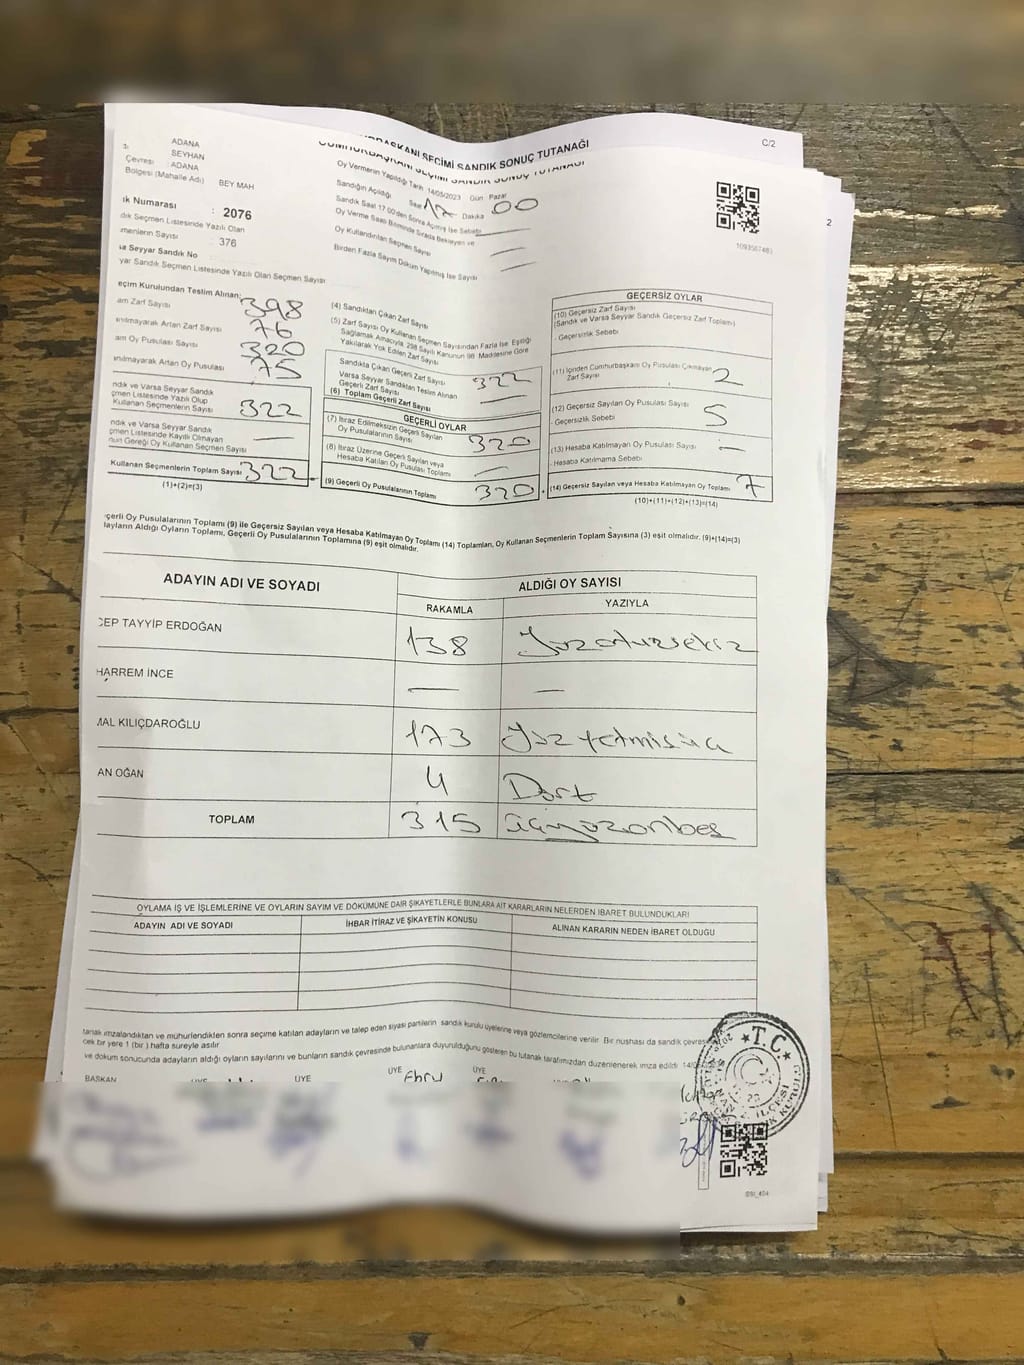 C/2
CUMHURBAŞKANI SEÇİMİ SANDIK SONUÇ TUTANAĞI
2
ADANA
SEYHAN
Çevresi : ADANA
Bölgesi (Mahalle Adı) BEY MAH
Oy Vermenin Yapıldığı Tarih 14/05/2023 Gün Pazar
Sandığın Açıldığı Saat 17 Dakika 00
Sandık Saat 17.00'den Sonra Açılmış İse Sebebi
Oy Verme Saati Bitiminde Sırada Bekleyen ve
Oy Kullandırılan Seçmen Sayısı
Birden Fazla Sayım Döküm Yapılmış İse Sayısı
ık Numarası : 2076
dık Seçmen Listesinde Yazılı Olan
menlerin Sayısı : 376
sa Seyyar Sandık No
yar Sandık Seçmen Listesinde Yazılı Olan Seçmen Sayısı
eçim Kurulundan Teslim Alınan:
am Zarf Sayısı 398
anılmayarak Artan Zarf Sayısı 76
am Oy Pusulası Sayısı 320
anılmayarak Artan Oy Pusulası 75
ndık ve Varsa Seyyar Sandık
çmen Listesinde Yazılı Olup
Kullanan Seçmenlerin Sayısı 322
ndık ve Varsa Seyyar Sandık
çmen Listesinde Kayıtlı Olmayan
nun Gereği Oy Kullanan Seçmen Sayısı —
Kullanan Seçmenlerin Toplam Sayısı 322
(1)+(2)=(3)
(4) Sandıktan Çıkan Zarf Sayısı
(5) Zarf Sayısı Oy Kullanan Seçmen Sayısından Fazla İse, Eşitliği
Sağlamak Amacıyla, 298 Sayılı Kanunun 98. Maddesine Göre
Yakılarak Yok Edilen Zarf Sayısı
Sandıkta Çıkan Geçerli Zarf Sayısı 322
Varsa Seyyar Sandıktan Teslim Alınan
Geçerli Zarf Sayısı —
(6) Toplam Geçerli Zarf Sayısı
GEÇERLİ OYLAR
(7) İtiraz Edilmeksizin Geçerli Sayılan
Oy Pusulalarının Sayısı 320
(8) İtiraz Üzerine Geçerli Sayılan veya
Hesaba Katılan Oy Pusulası Toplamı —
(9) Geçerli Oy Pusulalarının Toplamı 320
GEÇERSİZ OYLAR
(10) Geçersiz Zarf Sayısı
(Sandık ve Varsa Seyyar Sandık Geçersiz Zarf Toplamı)
- Geçersizlik Sebebi
(11) İçinden Cumhurbaşkanı Oy Pusulası Çıkmayan
Zarf Sayısı 2
(12) Geçersiz Sayılan Oy Pusulası Sayısı 5
- Geçersizlik Sebebi
(13) Hesaba Katılmayan Oy Pusulası Sayısı —
- Hesaba Katılmama Sebebi
(14) Geçersiz Sayılan veya Hesaba Katılmayan Oy Toplamı 7
(10)+(11)+(12)+(13)=(14)
çerli Oy Pusulalarının Toplamı (9) ile Geçersiz Sayılan veya Hesaba Katılmayan Oy Toplamı (14) Toplamları, Oy Kullanan Seçmenlerin Toplam Sayısına (3) eşit olmalıdır. (9)+(14)=(3)
dayların Aldığı Oyların Toplamı, Geçerli Oy Pusulalarının Toplamına (9) eşit olmalıdır.
ADAYIN ADI VE SOYADI ALDIĞI OY SAYISI
RAKAMLA YAZIYLA
CEP TAYYİP ERDOĞAN 138 Yüzotuzsekiz
HARREM İNCE — —
MAL KILIÇDAROĞLU 173 Yüzyetmişüç
AN OĞAN 4 Dört
TOPLAM 315 üçyüzonbeş
OYLAMA İŞ VE İŞLEMLERİNE VE OYLARIN SAYIM VE DÖKÜMÜNE DAİR ŞİKAYETLERLE BUNLARA AİT KARARLARIN NELERDEN İBARET BULUNDUKLARI
ADAYIN ADI VE SOYADI İHBAR İTİRAZ VE ŞİKAYETİN KONUSU ALINAN KARARIN NEDEN İBARET OLDUĞU
tanak imzalandıktan ve mühürlendikten sonra seçime katılan adayların ve talep eden siyasi partilerin sandık kurulu üyelerine veya gözlemcilerine verilir. Bir nüshası da sandık çevresi
cek bir yere 1 (bir) hafta süreyle asılır
ve döküm sonucunda adayların aldığı oyların sayılarını ve bunların sandık çevresinde bulunanlara duyurulduğunu gösteren bu tutanak tarafımızdan düzenlenerek imza edildi. 14/05
BAŞKAN ÜYE ÜYE ÜYE Ebru ÜYE
T.C.